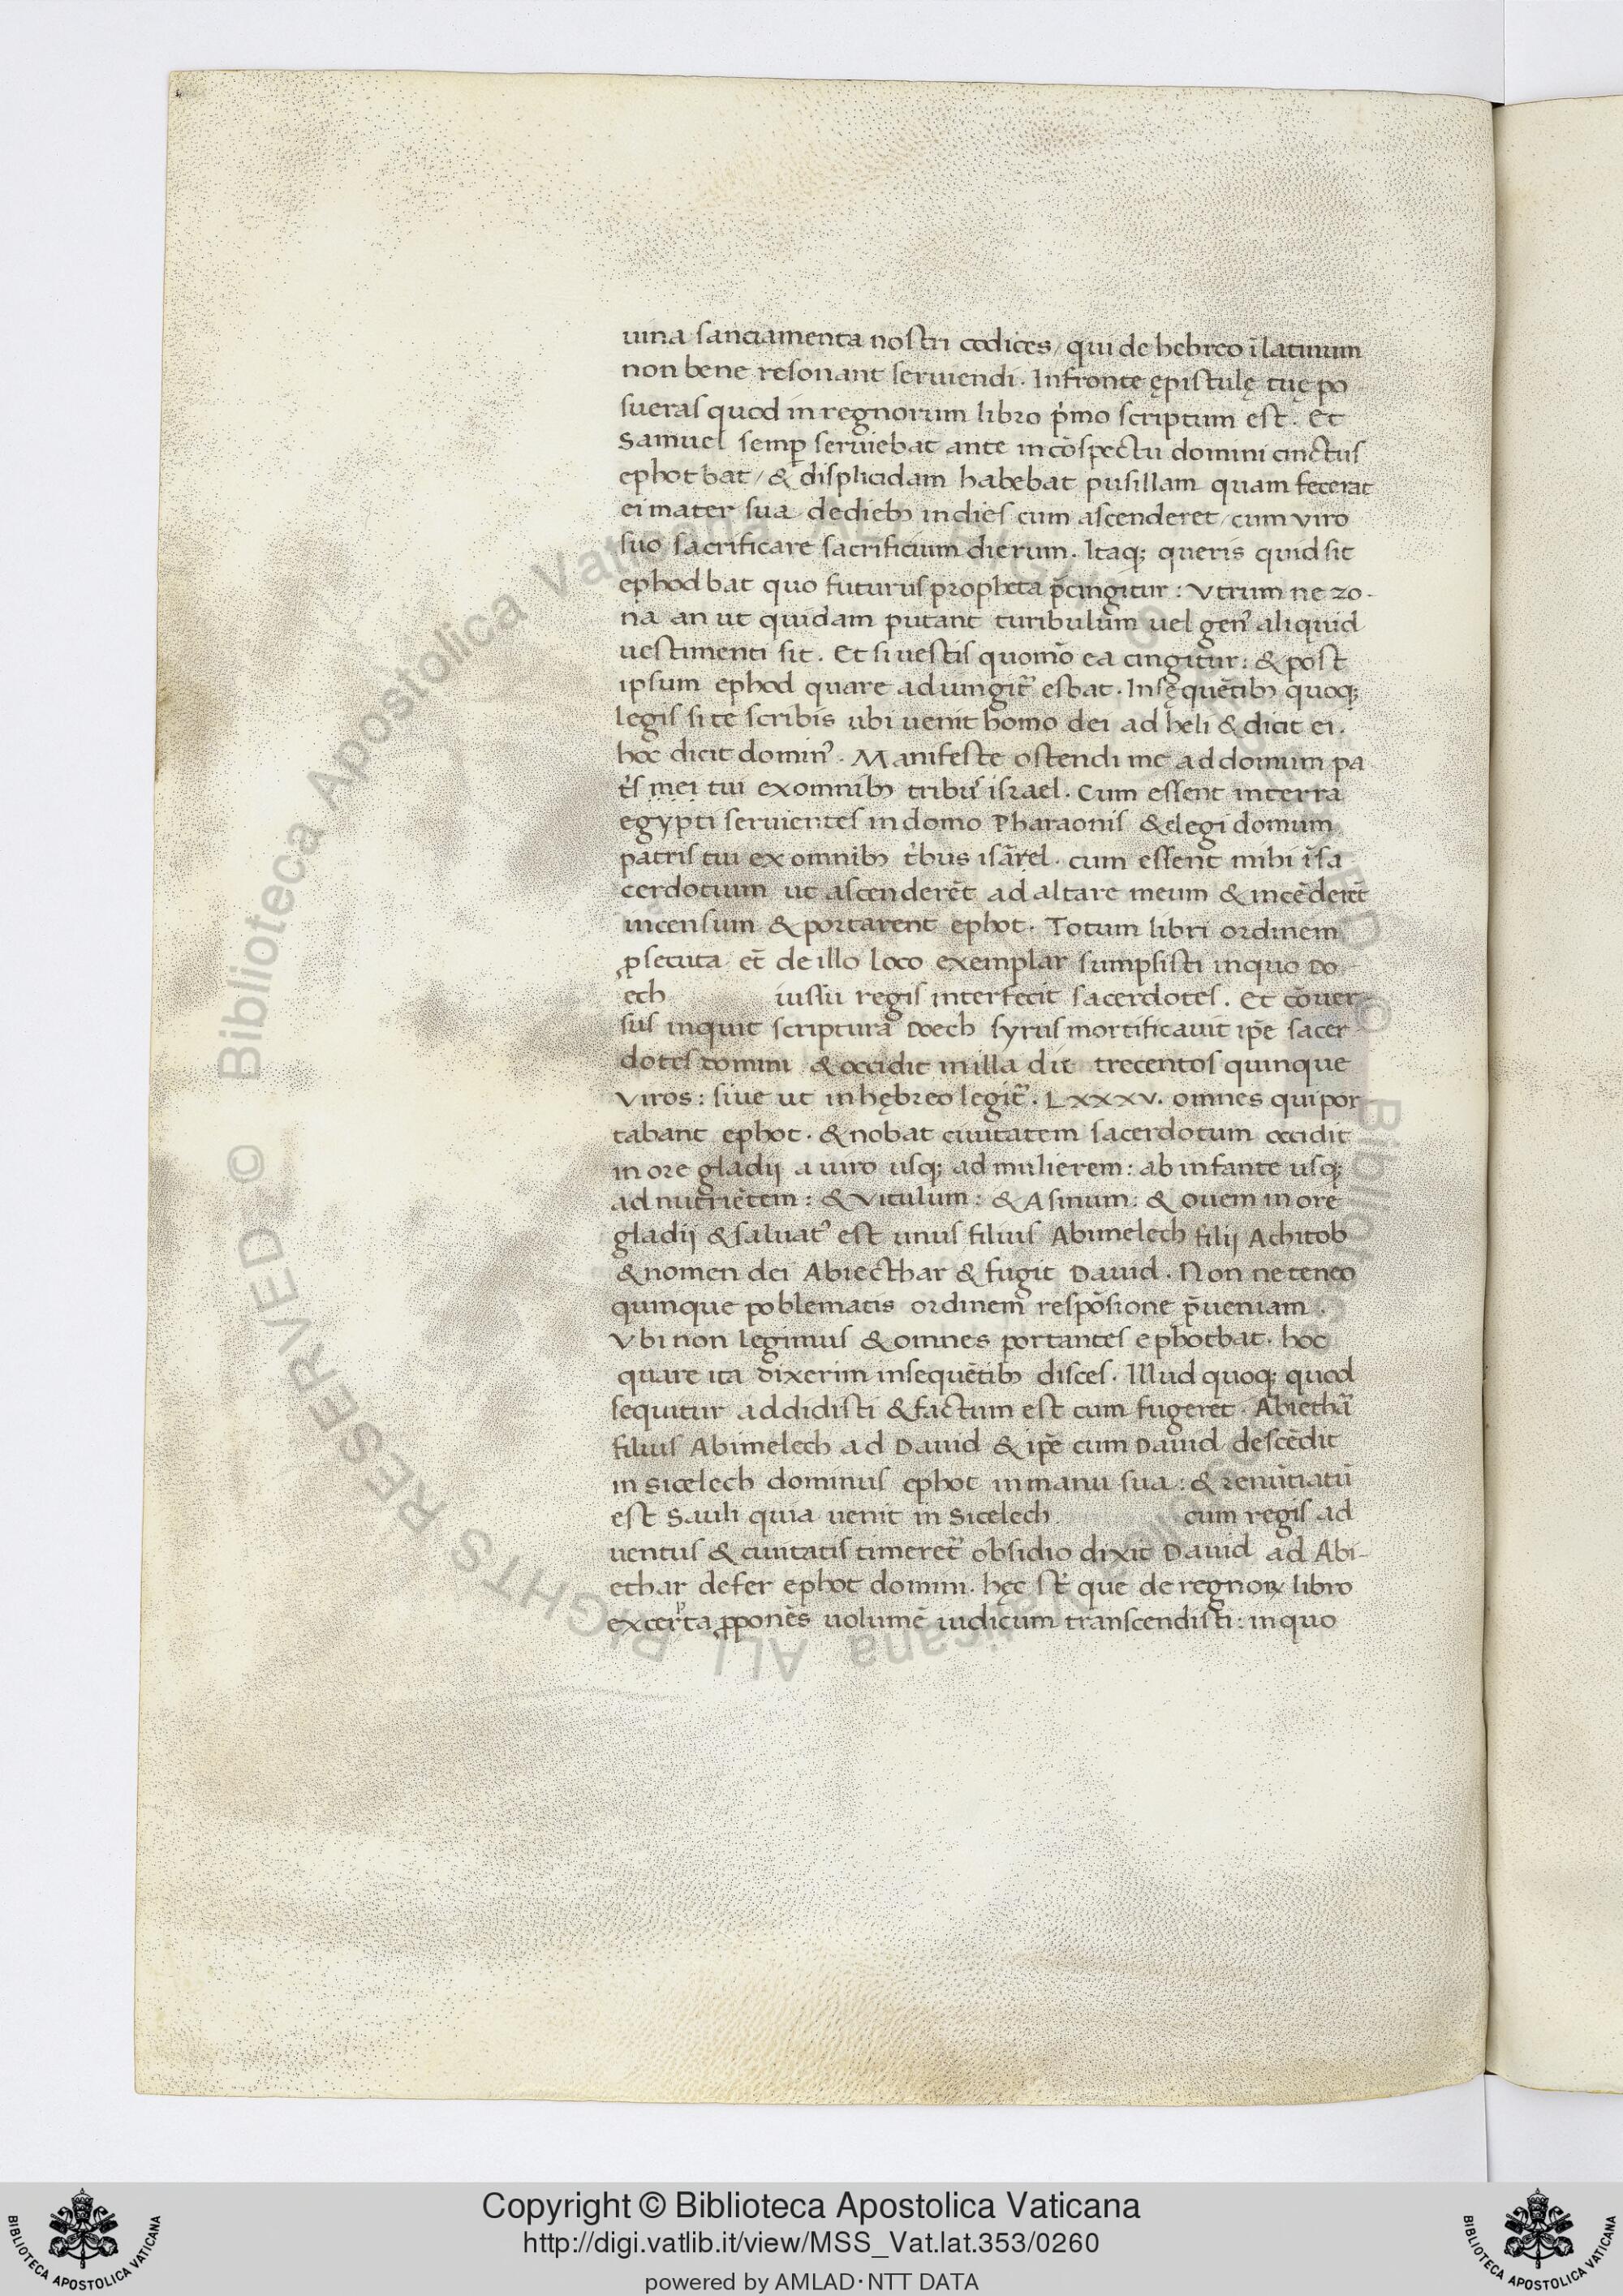 uina sanciamenta nostri codices / qui de hebreo ĩ latinum
non bene resonant seruiendi. In fronte ępistulę tuę po
sueras quod in regnorum libro p̍mo scriptum est. Et
Samuel semꝑ seruiebat ante in cõspectu domini cinctus
ephot bat / & displicidam habebat pusillam quam fecerat
ei mater sua de dieb₉ in dies cum ascenderet / cum viro
suo sacrificare sacrificium dierum. Itaq; queris quid sit
ephod bat quo futurus propheta p̄cingitur: Vtrum ne zo-
na an ut quidam putant turibulum uel genꝰ aliquid
uestimenti sit. Et si uestis quomõ ea cingitur: & post
ipsum ephod quare adiungit᷑ esbat. In sęquẽtib₉ quoq;
legis si te scribis ubi uenit homo dei ad heli & dicit ei.
hoc dicit dominꝰ. Manifeste ostendi me ad domum pa
t̍s mei tui ex omnib₉ tribuˢ israel. Cum essent in terra
egypti seruientes in domo Pharaonis & elegi domum
patris tui ex omnib₉ t̍bus isãrel. cum essent mihi ĩ sa
cerdotium ut ascenderẽt ad altare meum & incẽderẽt
incensum & portarent ephot. Totum libri ordinem
ꝓsecuta et̃ de illo loco exemplar sumpsisti in quo Do
ech iussu regis interfecit sacerdotes. Et cõuer-
sus inquit scriptura Doech syrus mortificauit ip̃e sacer
dotes domini & occidit in illa die trecentos quinque
Viros: siue ut in hębreo legit᷑. LXXXV. omnes qui por
tabant ephot. & nobat ciuitatem sacerdotum occidit
in ore gladij a uiro usq; ad mulierem: ab infante usq;
ad nutriẽtem: & Vitulum: & Asinum: & ouem in ore
gladij & saluatꝰ est unus filius Abimelech filij Achitob
& nomen dei Abiecthar & fugit Dauid. Non ne teneo
quinque poblematis ordinem respõsione p̄ueniam.
Vbi non legimus & omnes portantes ephotbat. hoc
quare ita dixerim in sequẽtib₉ disces. Illud quoq; quod
sequitur addidisti & factum est cum fugeret. Abiethã
filius Abimelech ad Dauid & ip̃e cum Dauid descẽdit
in Sicelech dominus ephot in manu sua: & renũtiatũ
est Sauli quia uenit in Sicelech cum regis ad
uentus & ciuitatis timeret᷑ obsidio dixit Dauid ad Abi-
ethar defer ephot domini. hęc st̃ que de regnoꝝ libro
excerpta ꝓponẽs uolumẽ iudicum transcendisti: in quo
Copyright © Biblioteca Apostolica Vaticana
http://digi.vatlib.it/view/MSS_Vat.lat.353/0260
powered by AMLAD · NTT DATA
BIBLIOTECA APOSTOLICA VATICANA
BIBLIOTECA APOSTOLICA VATICANA